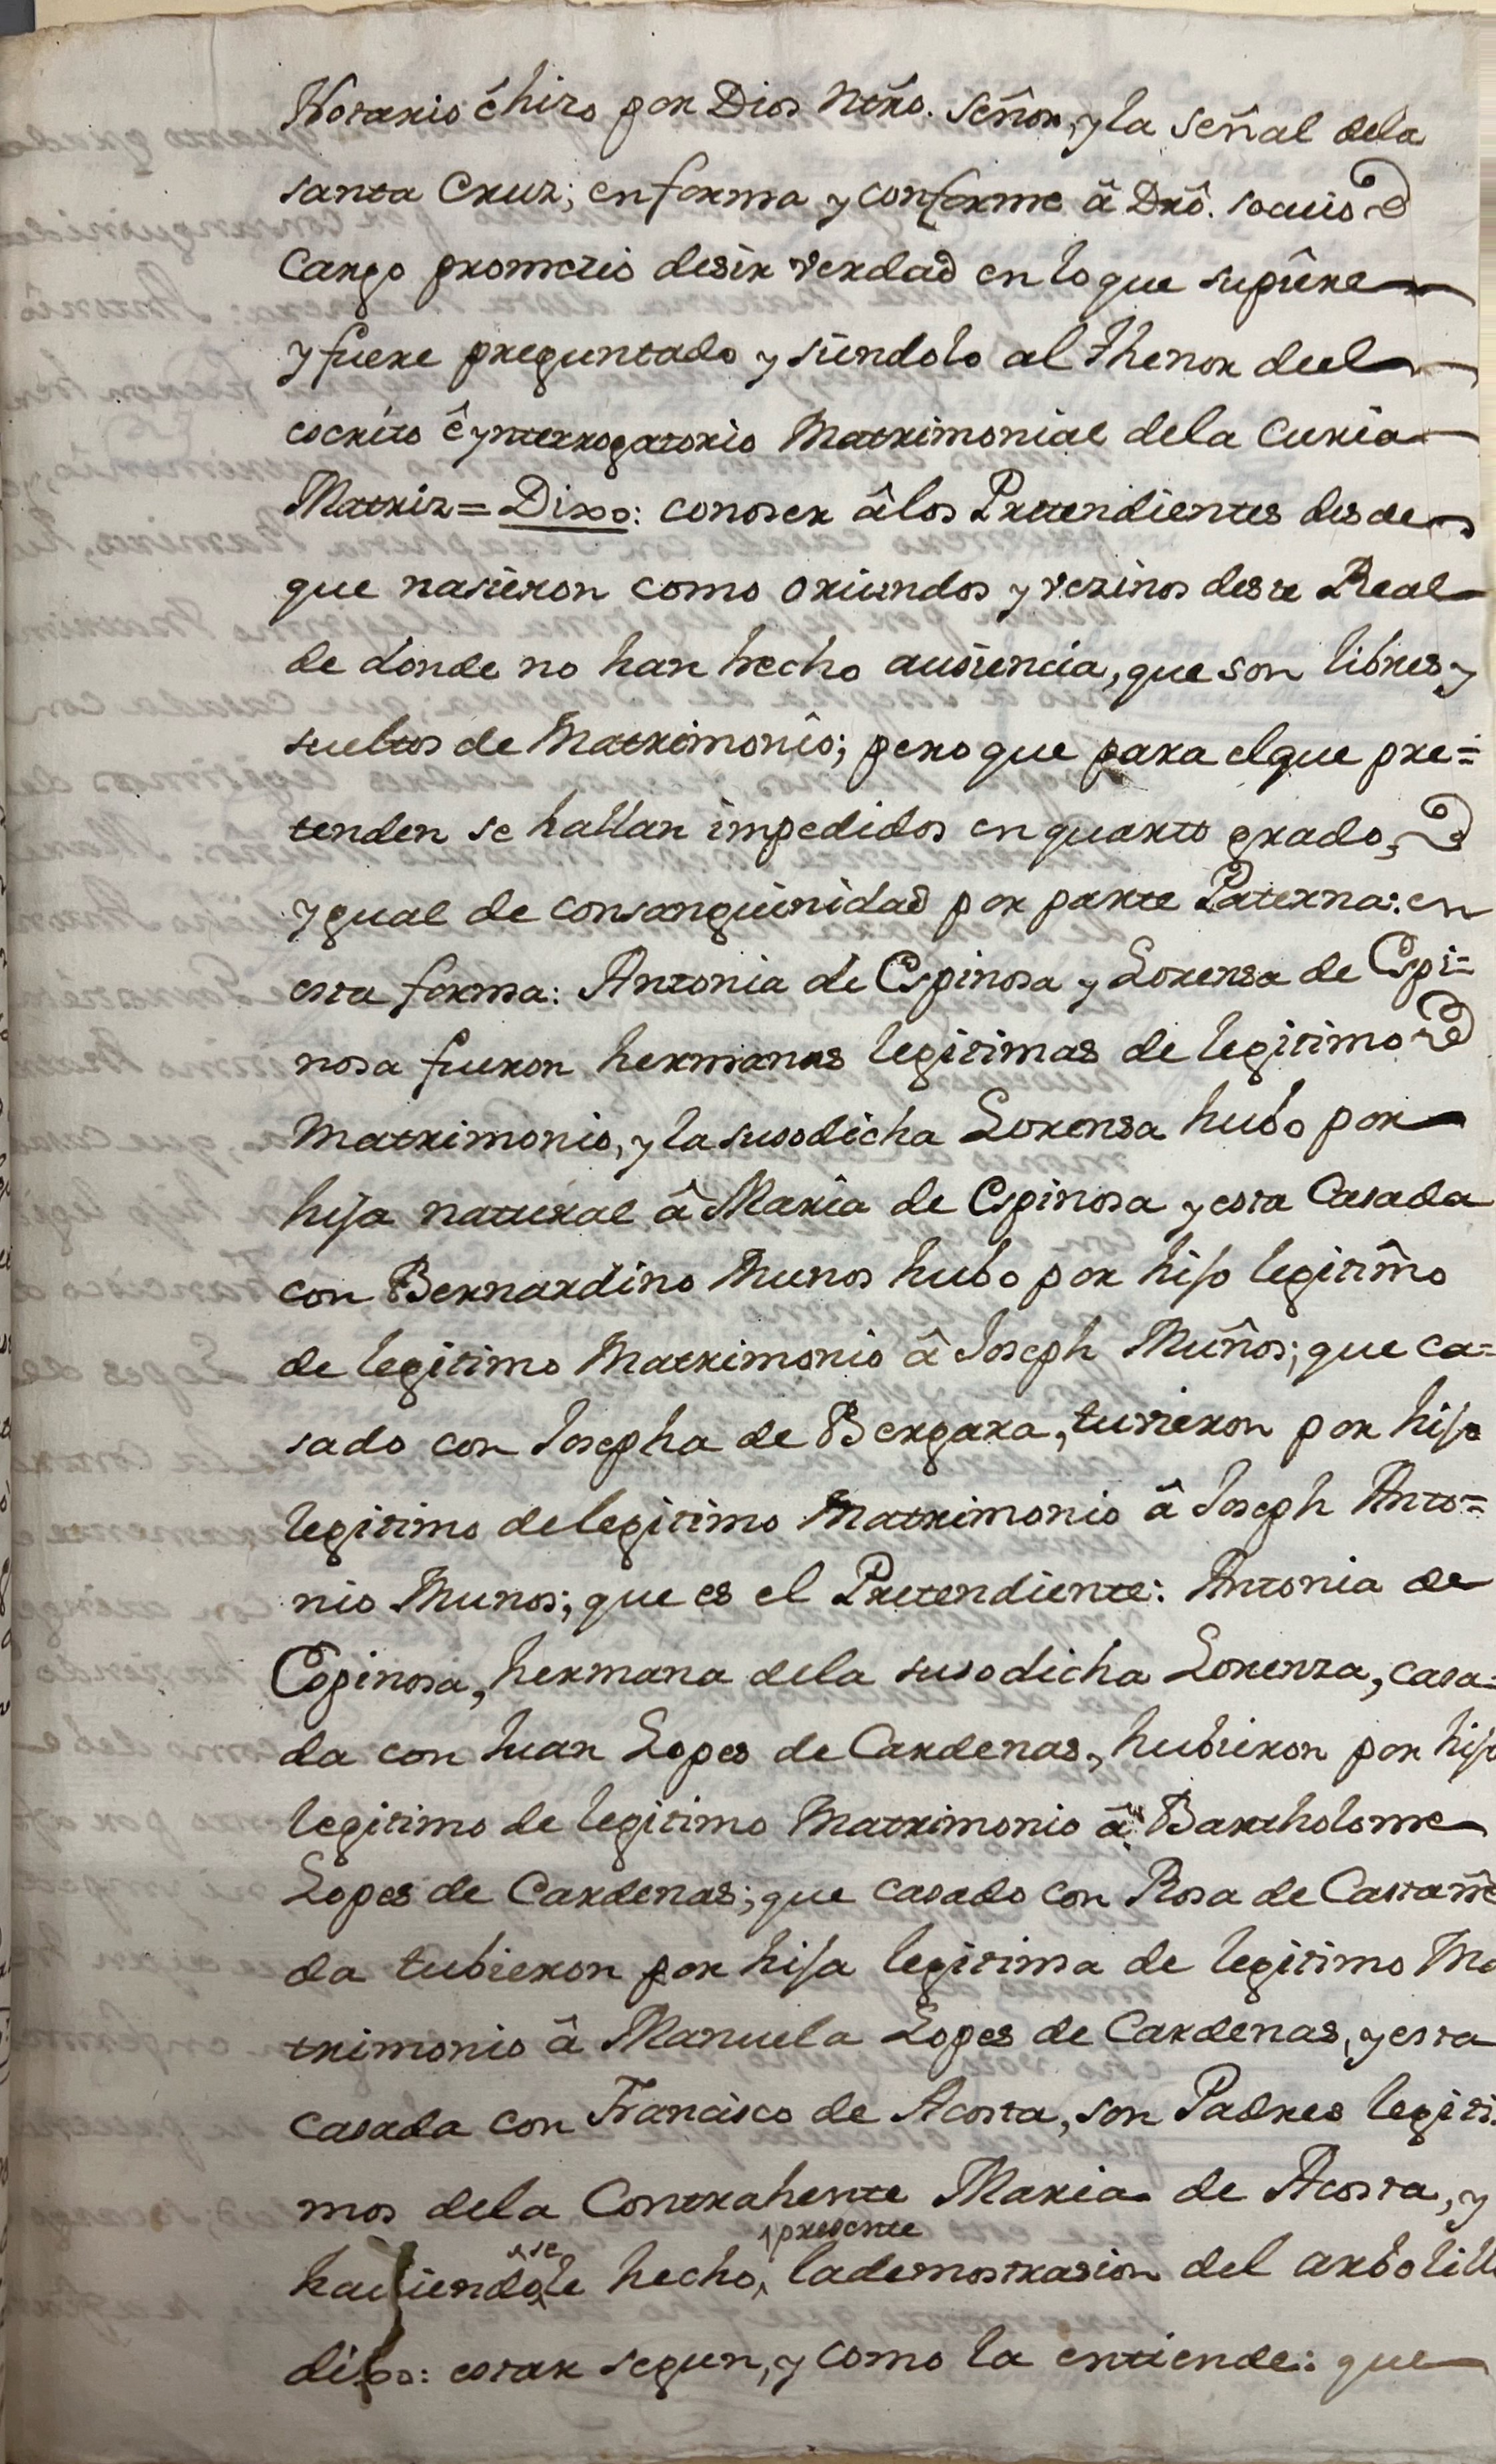 Notario ê hizo por Dios Ntrõ. Señor, y la señal dela
santa Cruz; en forma y conforme â Drô. so cuio
cargo prometio desir verdad en lo que supiere
y fuere preguntado y siendolo al thenor deel
escrito ê ynterrogatorio Matrimonial dela Curia
Matriz = Dixo: conoser â los Pretendientes desde
que nasieron como oriundos y vezinos deste Real
de donde no han hecho ausiencia, que son libres y
sueltos de Matrimonio; pero que para el que pre=
tenden se hallan impedidos en quarto grado,
ygual de consanguinidad por parte Paterna: en
esta forma: Antonia de Espinosa y Lorensa de Espi=
nosa fueron hermanas legitimas de legitimo
Matrimonio, y la susodicha Lorensa hubo por
hija natural â Maria de Espinosa y esta Casada
con Bernardino Munos hubo por hijo legitimo
de legitimo Matrimonio â Joseph Muños; que ca=
sado con Josepha de Bergara, tuvieron por hijo
legitimo de legitimo Matrimonio â Joseph Anto=
nio Munos; que es el Pretendiente: Antonia de
Espinosa, hermana dela susodicha Lorenza, casa=
da con Juan Lopes de Cardenas, hubieron por hijo
legitimo de legitimo Matrimonio â Bartholome
Lopes de Cardenas; que casado con Rosa de Castañe
da tubieron por hija legitima de legitimo Ma
trimonio â Manuela Lopes de Cardenas, y esta
casada con Francisco de Acosta, son Padres legiti
mos dela Contrahente Maria de Acosta, y
presente
haviendosele hecho, la demostrasion del arbolillo
dijo: estar segun, y como la entiende: que